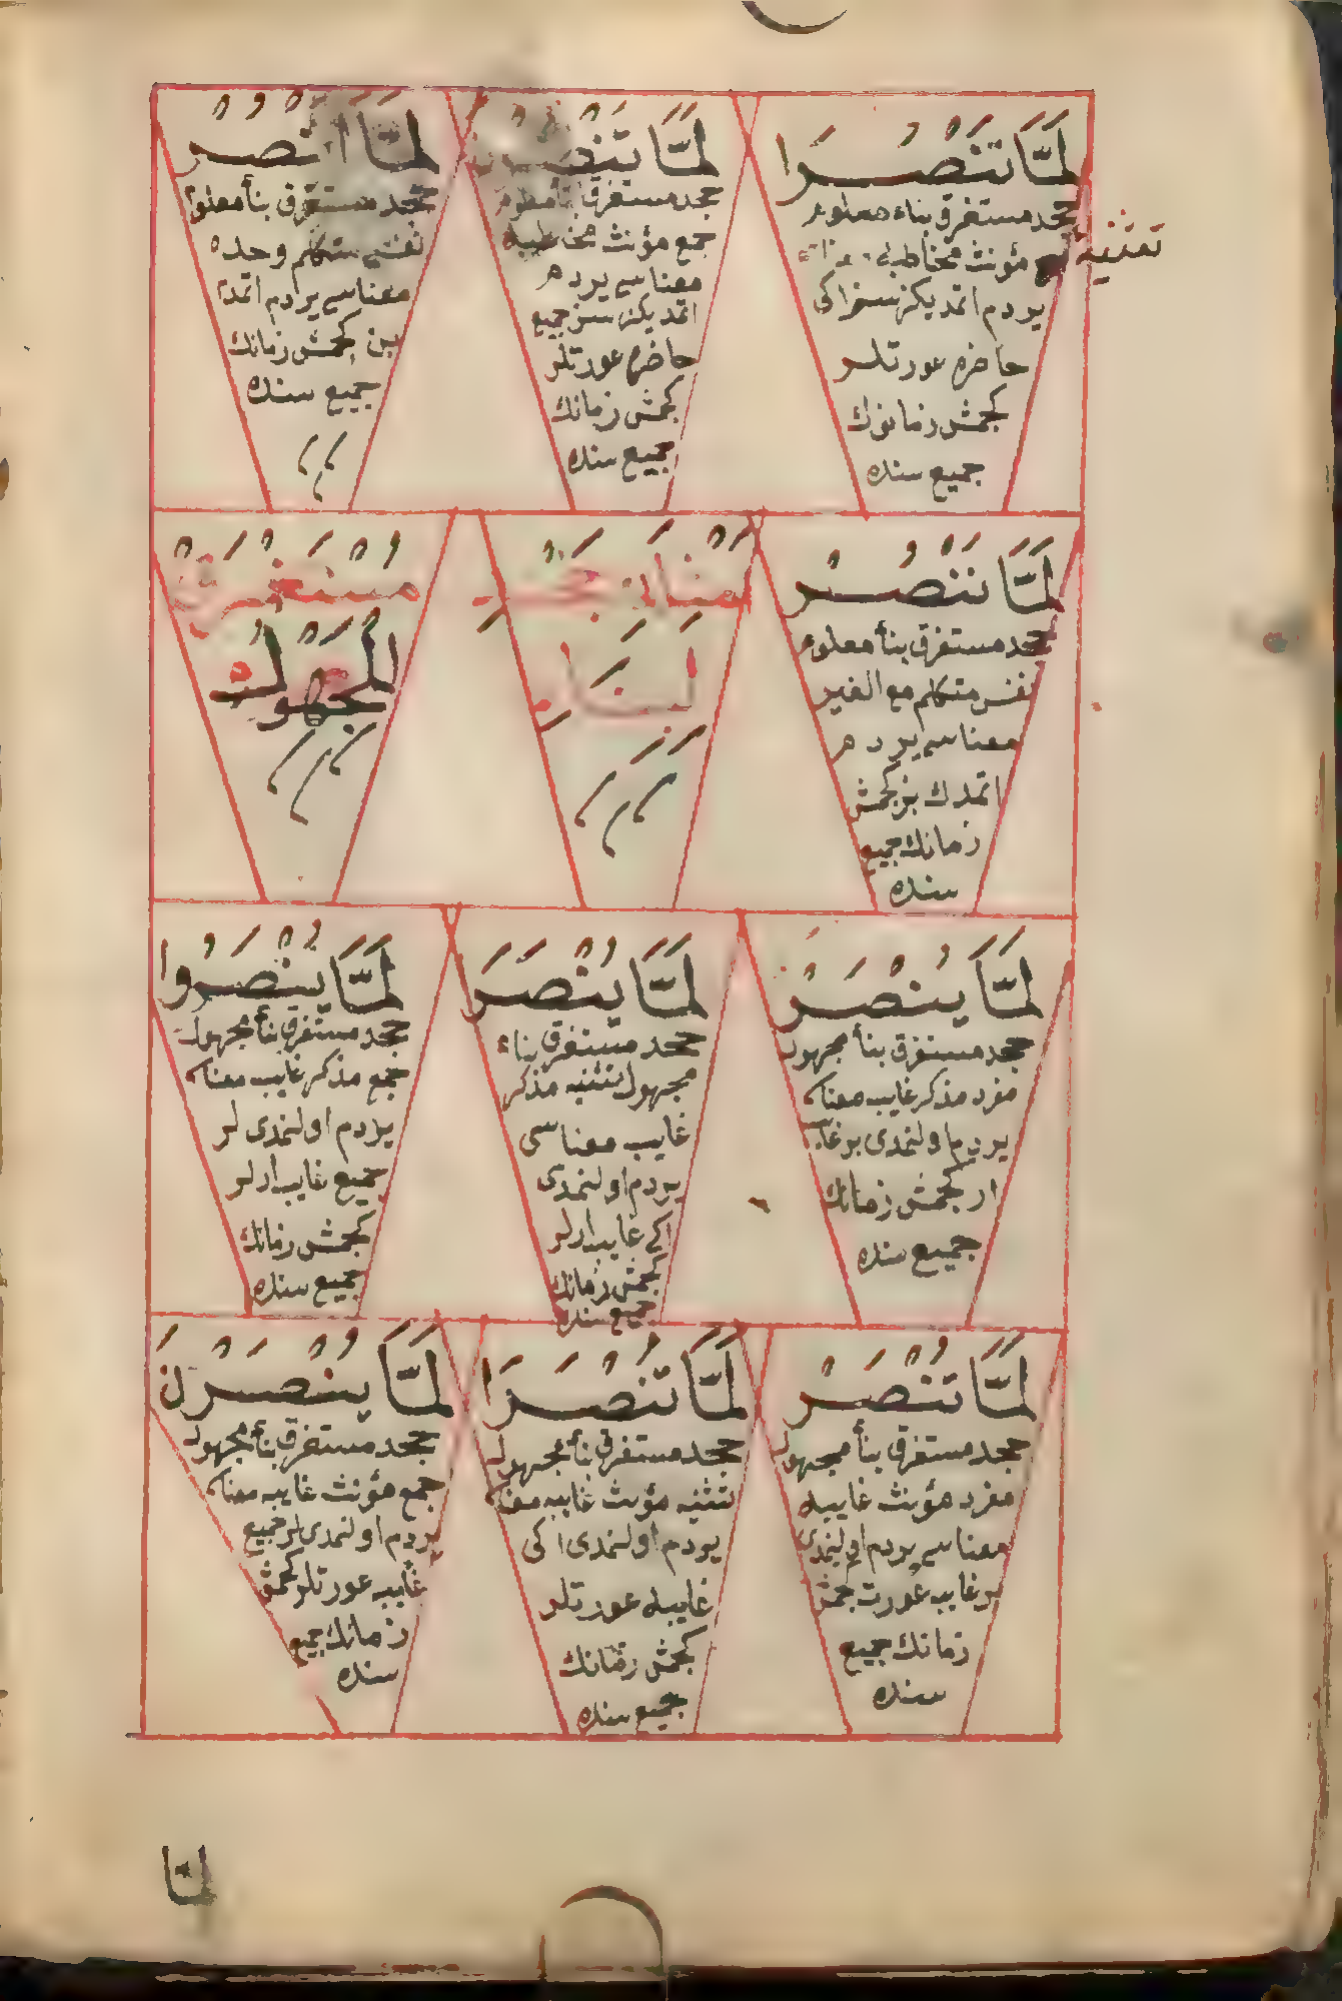 لَمَّا تَنْصُرَا
جحد مستغرق بناء معلوم
تثنیه
جمع مؤنث مخاطبه
یردم اتمدیکز سز اکی
حاضره عورتلر
کجمش زمانك
جمیع سنده
لَمَّا تَنْصُرْنَ
جحد مستغرق بنأ معلوم
جمع مؤنث مخاطبه
معناسی یردم
اتمدیکز سز جمیع
حاضره عورتلر
کجمش زمانك
جمیع سنده
لَمَّا اَنْصُرْ
جحد مستغرق بنأ معلوم
نفس متکلم وحده
معناسی یردم اتمدم
بن کجمش زمانك
جمیع سنده
لَمَّا نَنْصُرْ
جحد مستغرق بنأ معلوم
نفس متکلم مع الغیر
معناسی یردم
اتمدك بز کجمش
زمانك جمیع
سنده
جَحْد
لبناء
مُسْتَغْرَق
المجهول
لَمَّا یُنْصَرْ
جحد مستغرق بنأ مجهول
مفرد مذکر غایب معناسی
یردم اولنمدی بر غایب
ار کجمش زمانك
جمیع سنده
لَمَّا یُنْصَرَا
جحد مستغرق بناء
مجهول تثنیه مذکر
غایب معناسی
یردم اولنمدی
اکی غایب ارلر
کجمش زمانك
جمیع سنده
لَمَّا یُنْصَرُوا
جحد مستغرق بنأ مجهول
جمع مذکر غایب معناسی
یردم اولنمدی لر
جمیع غایب ارلر
کجمش زمانك
جمیع سنده
لَمَّا تُنْصَرْ
جحد مستغرق بنأ مجهول
مفرد مؤنث غایبه
معناسی یردم اولنمدی
بر غایبه عورت کجمش
زمانك جمیع
سنده
لَمَّا تُنْصَرَا
جحد مستغرق بنأ مجهول
تثنیه مؤنث غایبه معناسی
یردم اولنمدی اکی
غایبه عورتلر
کجمش زمانك
جمیع سنده
لَمَّا یُنْصَرْنَ
جحد مستغرق بنأ مجهول
جمع مؤنث غایبه معناسی
یردم اولنمدی لر جمیع
غایبه عورتلر کجمش
زمانك جمیع
سنده
لمّا